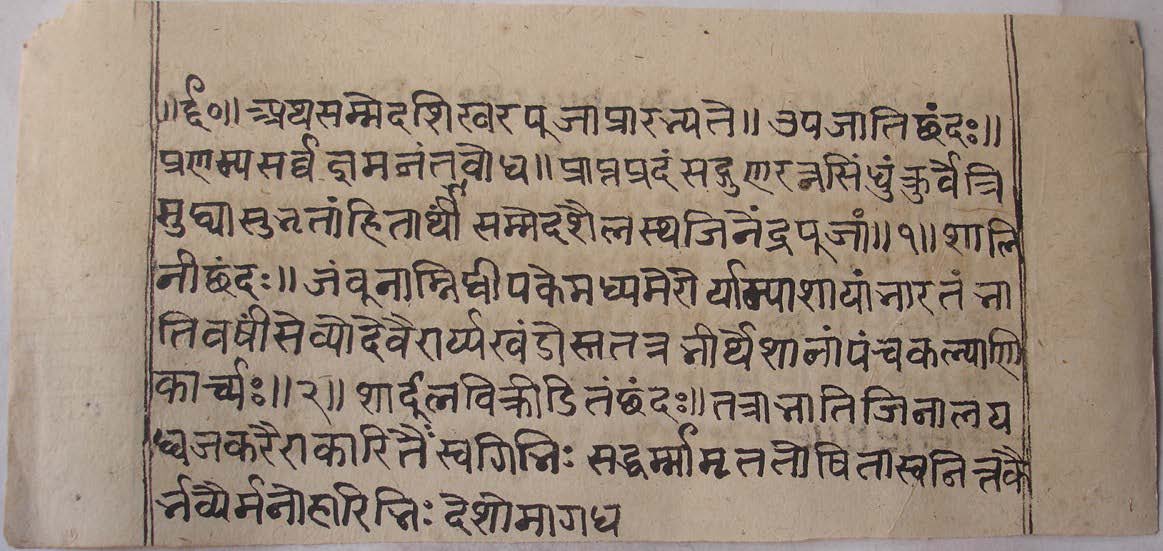 ॥र्द्द०॥ अथसम्मेदशिखरपूजाप्रारभ्यते॥ उपजातिछंदः॥
प्रणम्यसर्वज्ञमनंतबोधं॥ प्राप्तप्रदंसद्गुणरत्नसिंधुं कुर्वेत्रि
सुध्यासुनतांहितार्थं सम्मेदशैलस्थजिनेंद्रपूजां॥१॥ शालि
नीछंदः॥ जंबूनाम्निद्वीपकेमध्यमेरोर्याम्याशायांभारतंभा
तिवर्षंसेव्योदेवैरार्य्यखंडोस्ततत्र तीर्थेशानांपंचकल्याणि
कार्च्यः॥२॥ शार्दूलविक्रीडितंछंदः॥ तत्राभातिजिनालय
ध्वजकरैराकारितैः स्वर्गिभिः सद्धर्म्मामृततोषितास्वनिलकै
र्भव्यैर्मनोहारिभिः देशोमागध